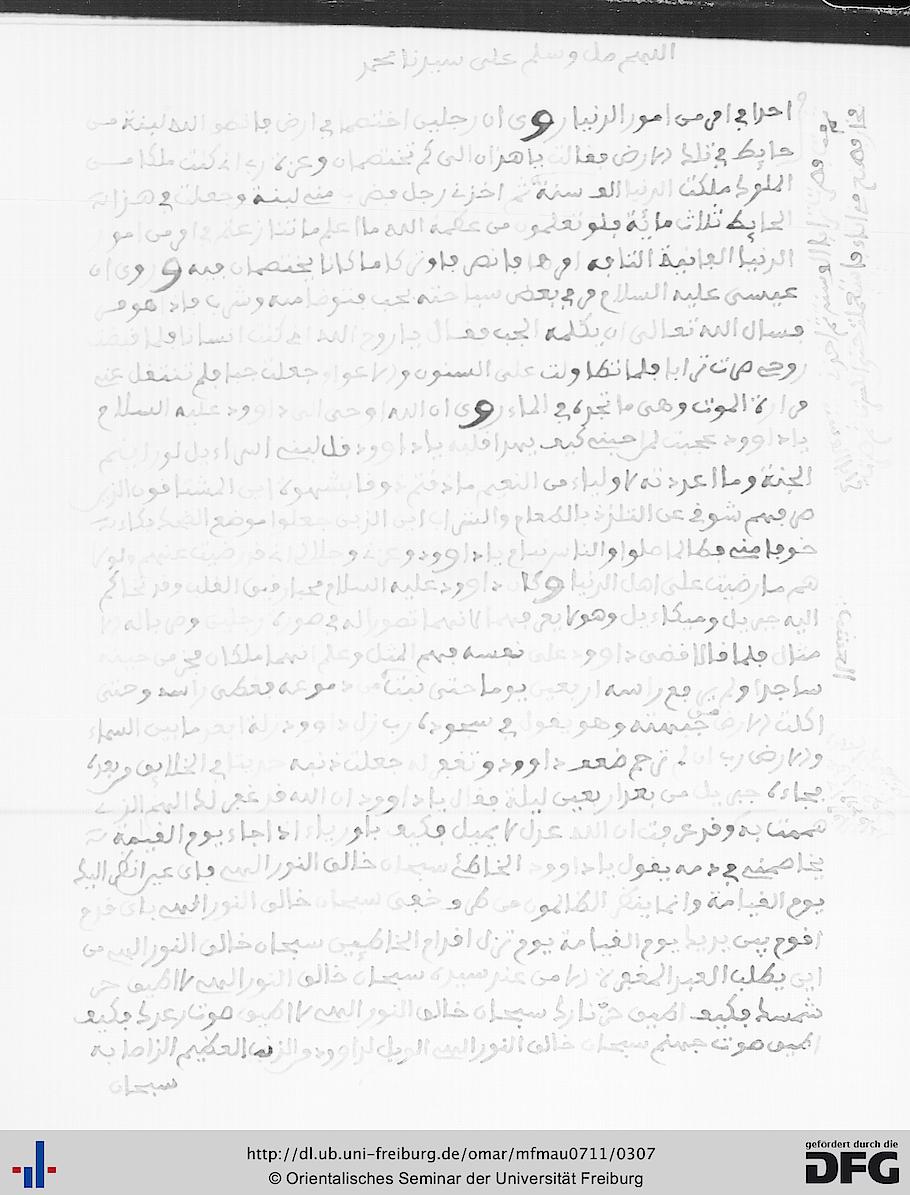 اللهم صل وسلم على سيدنا محمد
احدا في امر من امور الدنيا روى ان رجلين اختصما في ارض فانطق الله لبنة من
حايط في تلك الارض فقالت يا هذان الى كم تختصمان وعزة ربي اني كنت ملكا من
الملوك ملكت الدنيا الف سنة ثم اخذني رجل فضرب منه لبنة وجعلت في هذا
الحايط ثلاث مائة فلو تعلمون من عظمة الله ما اعلم ما تنازعتم في امر من امور
الدنيا الفانية التافه امرها فانصرفا وتركا ما كانا يختصمان فيه وروى ان
عيسى عليه السلام مر في بعض سياحته بجب فتوضا منه وشرب فاذا هو مر
فسال الله تعالى ان يكلمه الجب فقال يا روح الله اني كنت انسانا فلما قبضت
روحي صرت ترابا فلما تطاولت على السنون والاعوام جعلت جبا فلم تنتقل عني
مرارة الموت وهي ما تجده في الماء روى ان الله اوحى الى داوود عليه السلام
يا داوود عجبت لمن احبني كيف يهدا قلبه يا داوود قل لبني اسراءيل لو رايتم
الجنة وما اعددته لاولياءي من النعيم ما ذقتم ذوقا بشهوة اين المشتاقون الذين
صرفهم شوقي عن التلذذ بالطعام والشراب اين الذين جعلوا موضع الضحك بكاء
خوفا مني فطالما صلوا والناس نيام يا داوود وعزتي وجلالي اني قد رضيت عنهم ولولا
هم ما رضيت على اهل الدنيا وكان داوود عليه السلام رقيق القلب وقد تحاكم
اليه جبريل وميكاءيل وهو لا يعرفهما لانهما تصورا له في صورة رجلين وضربا له الا
مثال فلما قضى داوود على نفسه فهم المثل وعلم انهما ملكان فخر من حينه
ساجدا ولم يرفع راسه اربعين يوما حتى نبت من دموعه فغطى راسه وحتى
اكلت الارض من جبهته وهو يقول في سجوده رب زل داوود زلة ابعد ما بين السماء
والارض رب ان لم ترحم ضعف داوود وتغفر له جعلت ذنبه حديثا في الخلايق من بعده
فجاءه جبريل من بعد اربعين ليلة فقال يا داوود ان الله قد غفر لك الهم الذي
هممت به وقد عرفت ان الله عدل لا يميل فكيف باورياء اذا جاء يوم القيمة
يخاصمني في دمه يقول يا داوود الخاطئ سبحان خالق النور الهي باي عين انظر اليك
يوم القيامة وانما ينظر الظالمون من طرف خفي سبحان خالق النور الهي باي قدم
اقوم بين يديك يوم القيامة يوم تزل اقدام الخاطيين سبحان خالق النور الهي من
اين يطلب العبد المغفرة الا من عند سيده سبحان خالق النور الهي لا اطيق حر
شمسك فكيف اطيق حر نارك سبحان خالق النور الهي لا اطيق صوت رعدك فكيف
اطيق صوت جهنم سبحان خالق النور الهي الويل لداوود والذنب العظيم الذي اصابه
سبحان
http://dl.ub.uni-freiburg.de/omar/mfmau0711/0307
© Orientalisches Seminar der Universität Freiburg
gefördert durch die
DFG